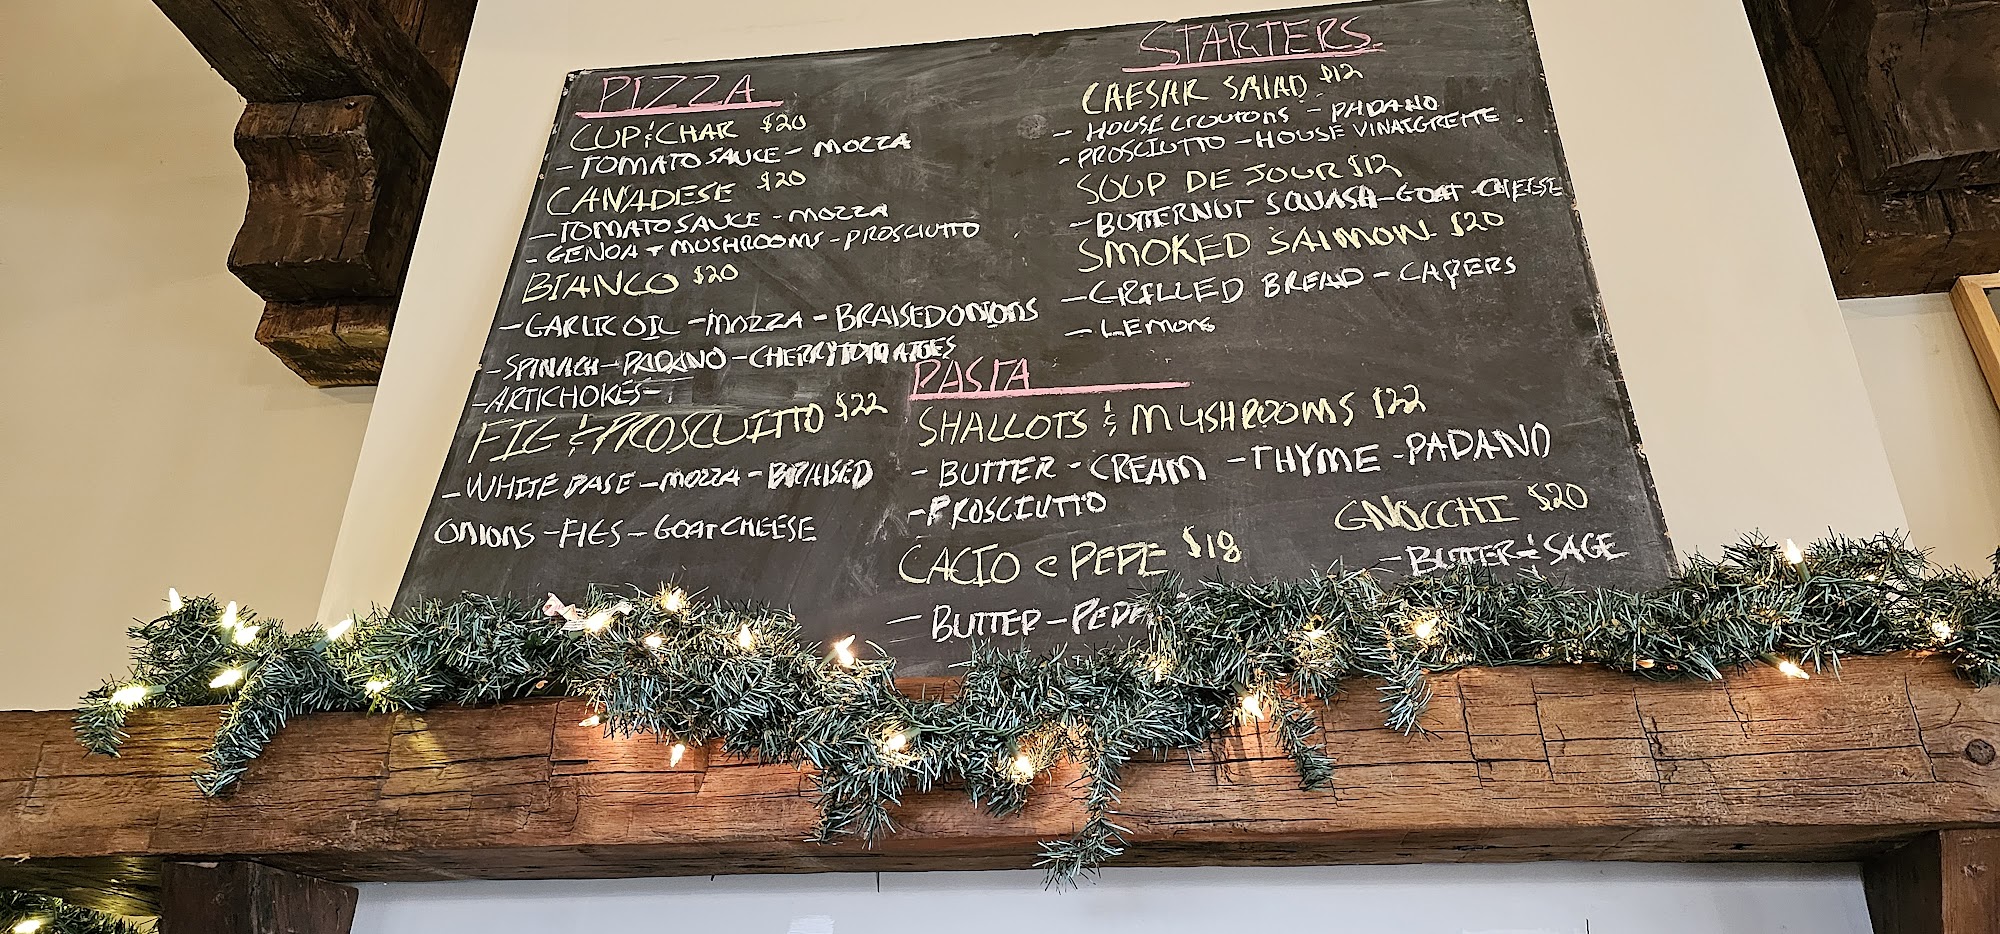 PIZZA
CUP & CHAR $20
- TOMATO SAUCE - MOZZA
CANADESE $20
- TOMATO SAUCE - MOZZA
- GENOA + MUSHROOMS - PROSCIUTTO
BIANCO $20
- GARLIC OIL - MOZZA - BRAISED ONIONS
- SPINACH - PADANO - CHERRY TOMATOES
- ARTICHOKES -
FIG & PROSCUITTO $22
- WHITE BASE - MOZZA - BRAISED
ONIONS - FIGS - GOAT CHEESE
STARTERS
CAESAR SALAD $12
- HOUSE CROUTONS - PADANO
- PROSCIUTTO - HOUSE VINAIGRETTE
SOUP DE JOUR $12
- BUTTERNUT SQUASH - GOAT - CHEESE
SMOKED SALMON $20
- GRILLED BREAD - CAPERS
- LEMONS
PASTA
SHALLOTS & MUSHROOMS $22
- BUTTER - CREAM - THYME - PADANO
- PROSCIUTTO
CACIO e PEPE $18
- BUTTER -
GNOCCHI $20
- BUTTER & SAGE